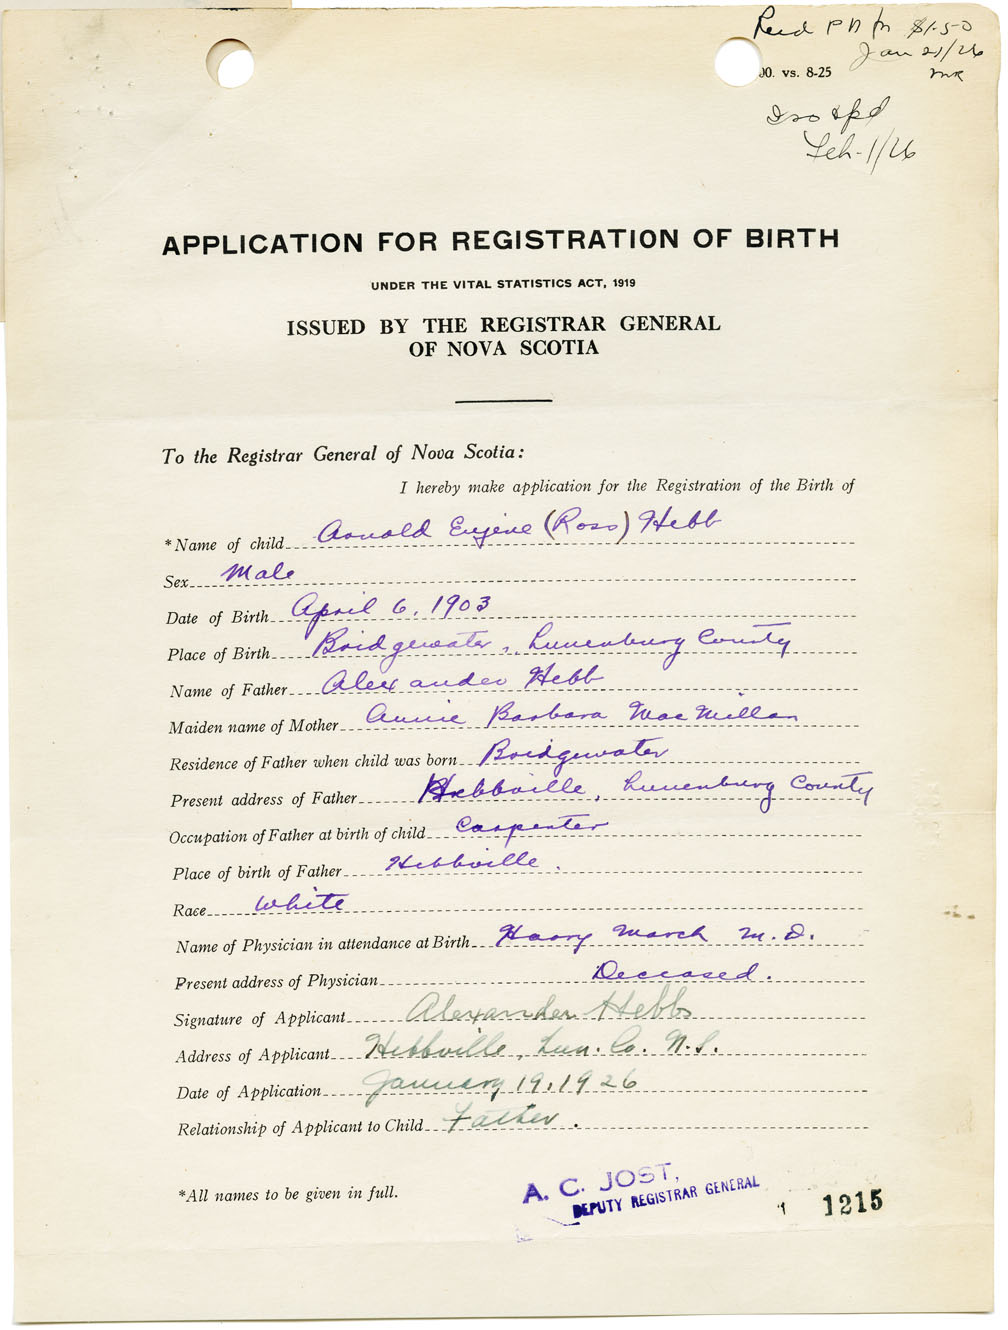 Recd P N for $1.50
Jan 21/26
00. vs. 8-25
MR
Iss
Feb-1/26
APPLICATION FOR REGISTRATION OF BIRTH
UNDER THE VITAL STATISTICS ACT, 1919
ISSUED BY THE REGISTRAR GENERAL
OF NOVA SCOTIA
To the Registrar General of Nova Scotia:
I hereby make application for the Registration of the Birth of
*Name of child Arnold Eugene (Ross) Hebb
Sex Male
Date of Birth April 6, 1903
Place of Birth Bridgewater, Lunenburg County
Name of Father Alexander Hebb
Maiden name of Mother Annie Barbara MacMillan
Residence of Father when child was born Bridgewater
Present address of Father Hebbville, Lunenburg County
Occupation of Father at birth of child Carpenter
Place of birth of Father Hebbville.
Race White
Name of Physician in attendance at Birth Harry March M.D.
Present address of Physician Deceased.
Signature of Applicant Alexander Hebb
Address of Applicant Hebbville, Lun. Co. N.S.
Date of Application January 19, 1926
Relationship of Applicant to Child Father.
*All names to be given in full.
A. C. JOST,
DEPUTY REGISTRAR GENERAL
1215